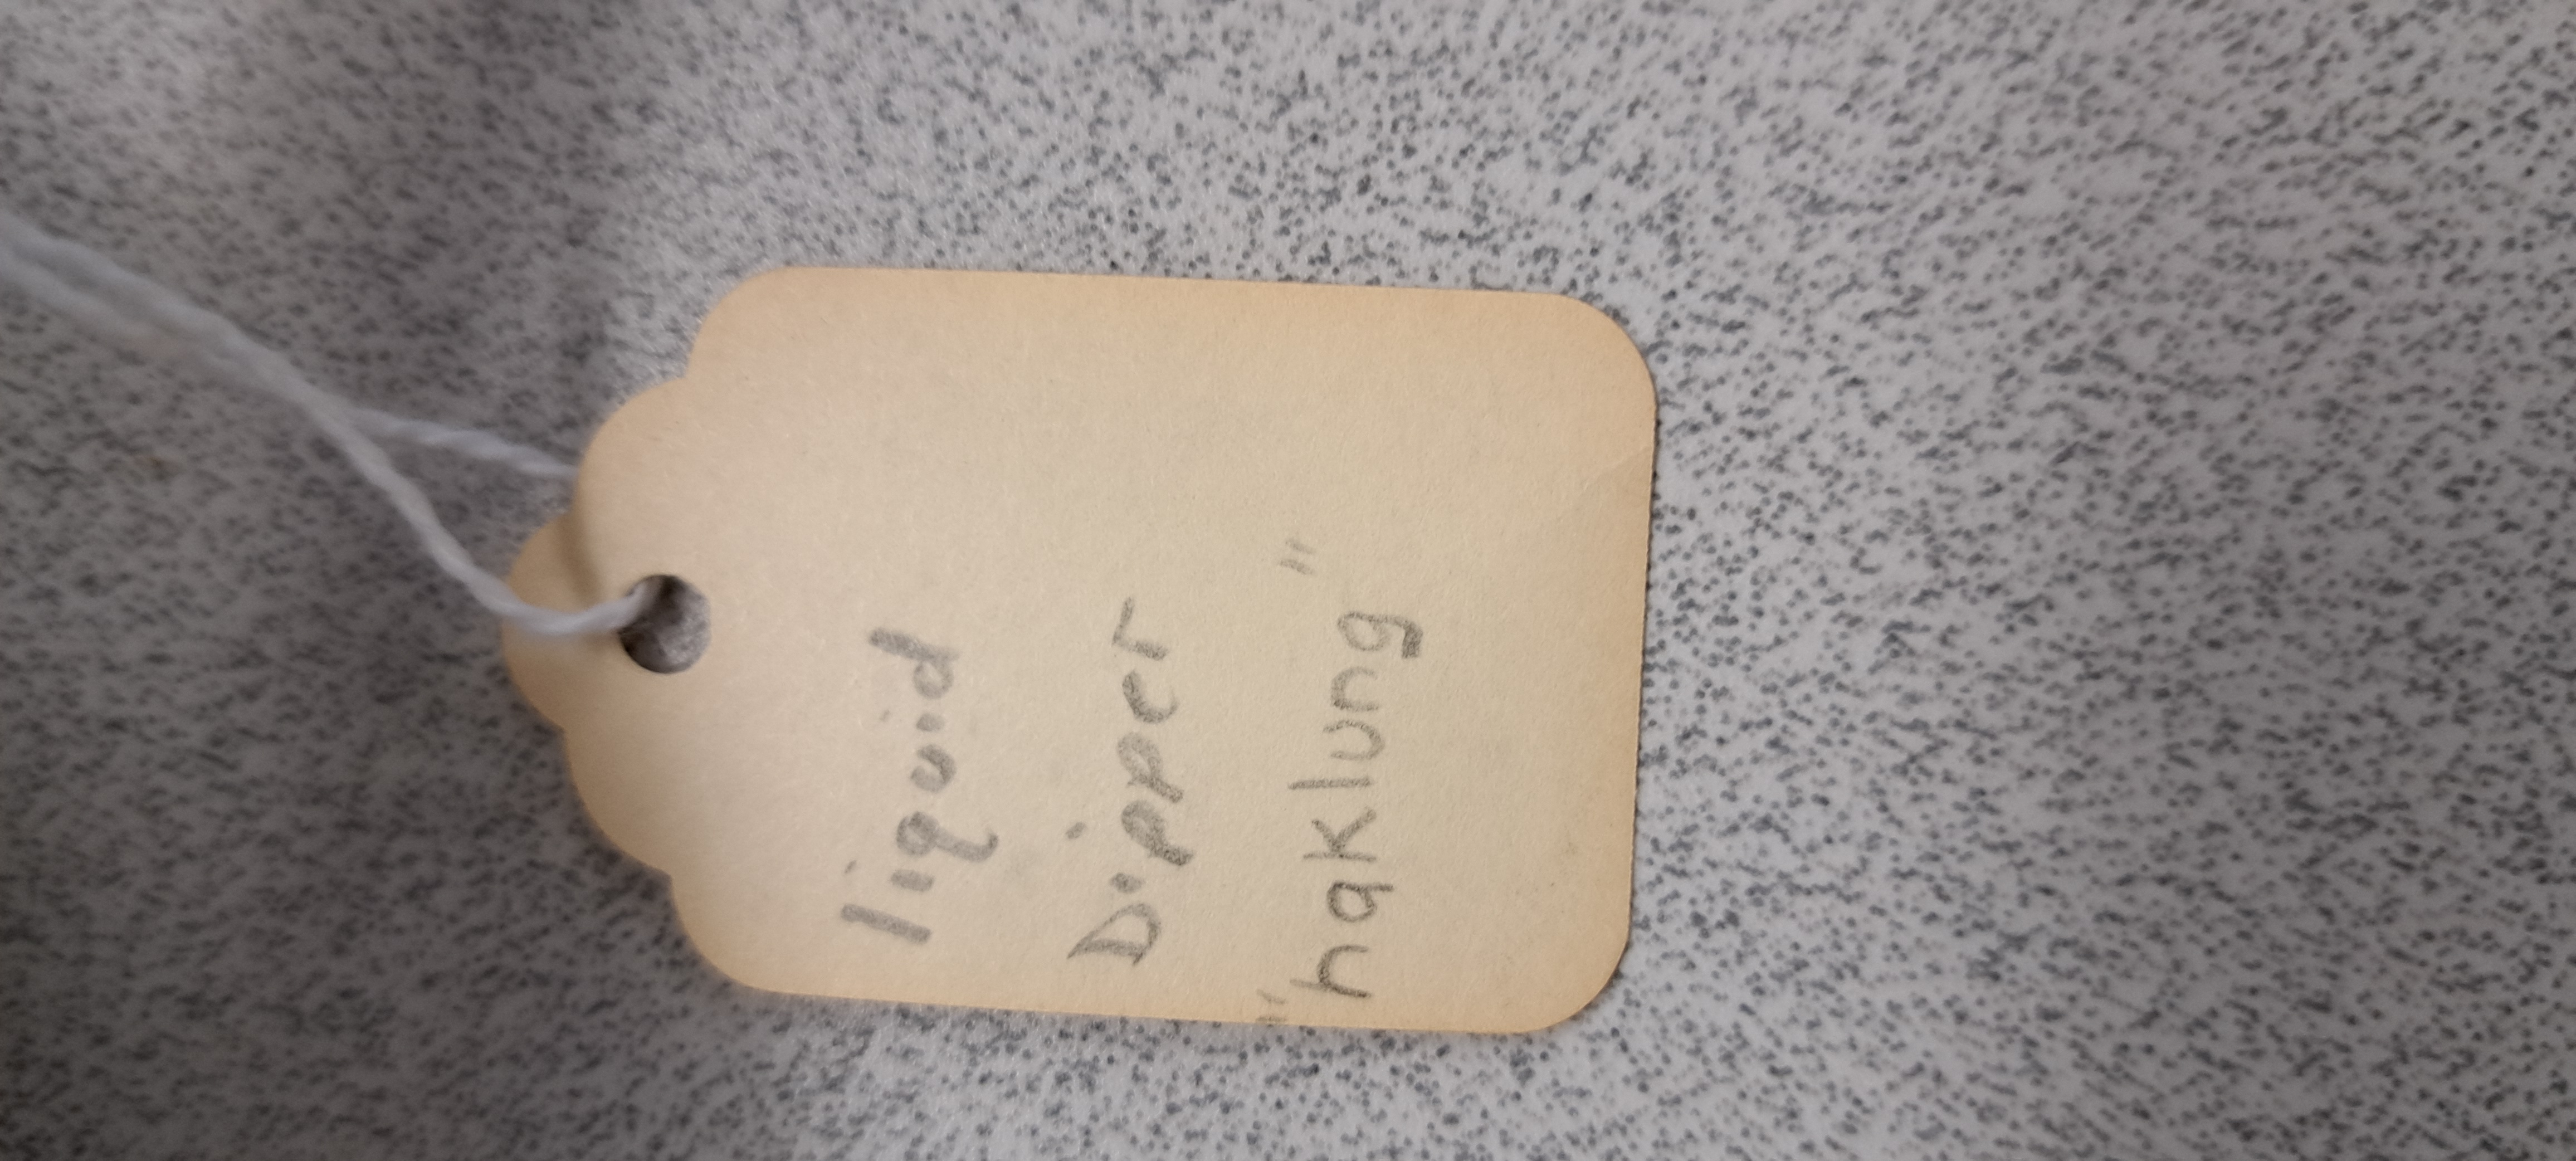 liquid
Dipper
"haklung"